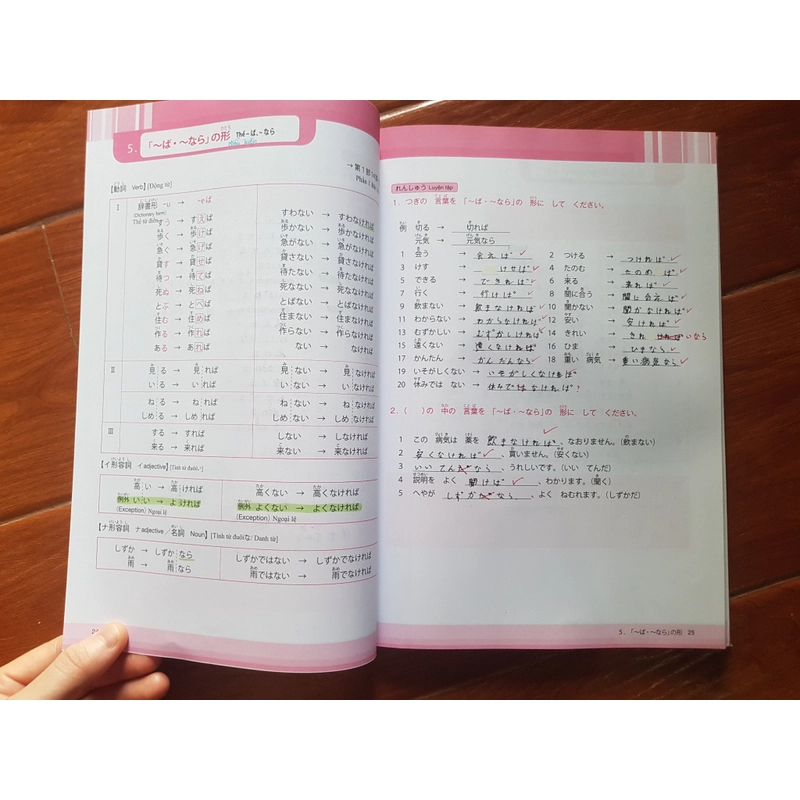 5. 「～ば・～なら」の形 Thể –ば, –なら
【動詞 Verb】[Động từ]
Ⅰ 辞書形 -u → -eば
(Dictionary form)
Thể từ điển
すう → すえば すわない → すわなければ
歩く → 歩けば 歩かない → 歩かなければ
急ぐ → 急げば 急がない → 急がなければ
貸す → 貸せば 貸さない → 貸さなければ
待つ → 待てば 待たない → 待たなければ
死ぬ → 死ねば 死なない → 死ななければ
とぶ → とべば とばない → とばなければ
住む → 住めば 住まない → 住まなければ
作る → 作れば 作らない → 作らなければ
ある → あれば ない → なければ
Ⅱ 見る → 見れば 見ない → 見なければ
いる → いれば いない → いなければ
ねる → ねれば ねない → ねなければ
しめる → しめれば しめない → しめなければ
Ⅲ する → すれば しない → しなければ
来る → 来れば 来ない → 来なければ
【イ形容詞 イadjective】[Tính từ đuôiい]
高い → 高ければ 高くない → 高くなければ
例外 いい → よければ 例外 よくない → よくなければ
(Exception) Ngoại lệ (Exception) Ngoại lệ
【ナ形容詞 ナadjective／名詞 Noun】[Tính từ đuôiな/ Danh từ]
しずか → しずかなら しずかではない → しずかでなければ
雨 → 雨なら 雨ではない → 雨でなければ
れんしゅう Luyện tập
1. つぎの 言葉を 「～ば・～なら」の 形に して ください。
例 切る → 切れば
元気 → 元気なら
1 会う → 会えば 2 つける → つければ
3 けす → けせば 4 たのむ → たのめば
5 できる → できれば 6 来る → 来れば
7 行く → 行けば 8 間に合う → 間に合えば
9 飲まない → 飲まなければ 10 聞かない → 聞かなければ
11 わからない → わからなければ 12 安い → 安ければ
13 むずかしい → むずかしければ 14 きれい → きれいなら
15 遠くない → 遠くなければ 16 ひま → ひまなら
17 かんたん → かんたんなら 18 重い 病気 → 重い病気なら
19 いそがしくない → いそがしくなければ
20 休みでは ない → 休みではなければ?
2. ( )の 中の 言葉を 「～ば・～なら」の 形に して ください。
1 この 病気は 薬を 飲まなければ、なおりません。(飲まない)
2 安くなければ、買いません。(安くない)
3 いい てんきなら、うれしいです。(いい てんき)
4 説明を よく 聞けば、わかります。(聞く)
5 へやが しずかなら、よく ねむれます。(しずかだ)
5. 「～ば・～なら」の形 25